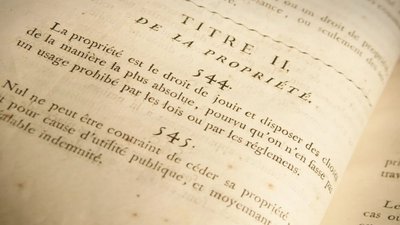 ou un droit de propriété
ance, ou seulement des ser
TITRE II.
DE LA PROPRIÉTÉ.
544.
La propriété est le droit de jouir et disposer des choses
de la manière la plus absolue, pourvu qu'on n'en fasse pas
un usage prohibé par les lois ou par les réglemens.
545.
Nul ne peut être contraint de céder sa propriété,
t pour cause d'utilité publique, et moyennant
alable indemnité.
Le pro
travau
Le
cas où